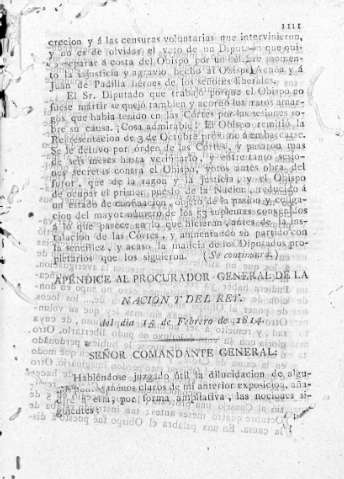 1111
crecion y á las censuras voluntarias que intervinieron,
y no es de olvidar el voto de un Diputado que qui-
so separar á costa del Obispo por un momen-
to la injusticia y agravio hecho al Obispo Acuña y á
Juan de Padilla héroes de los señores liberales.
El Sr. Diputado que trabajó porque el Obispo no
fuese mártir se quejó tambien y acordó los ratos amar-
gos que habia tenido en las Córtes por las sesiones so-
bre su causa. ¡Cosa admirable! El Obispo remitió la
Representacion de 3 de Octubre próximo á embarcarse.
Se le detuvo por órden de las Córtes, y pasaron mas
de seis meses hasta verificarlo, y entre tanto sesio-
nes secretas contra el Obispo, votos antes obra del
furor, que de la razon y la justicia, y el Obispo
de ocupar el primer puesto de la Nacion, reducido á
un estado de humillacion, objeto de la pasion y
cion del mayor número de los 53 suplentes
á lo que parece en la que hicieron antes de la ins-
talacion de las Córtes, y aumentado su partido con
la sencillez, y acaso la malicia de los Diputados pro-
pietarios que los siguieron. (Se continuará.)
APÉNDICE AL PROCURADOR GENERAL DE LA
NACION Y DEL REY.
del dia 15 de Febrero de 1814.
SEÑOR COMANDANTE GENERAL:
Habiéndose juzgado útil la dilucidacion de algu-
nos claros de mi anterior exposicion, aña-
por forma ampliativa, las nociones si-
guientes: